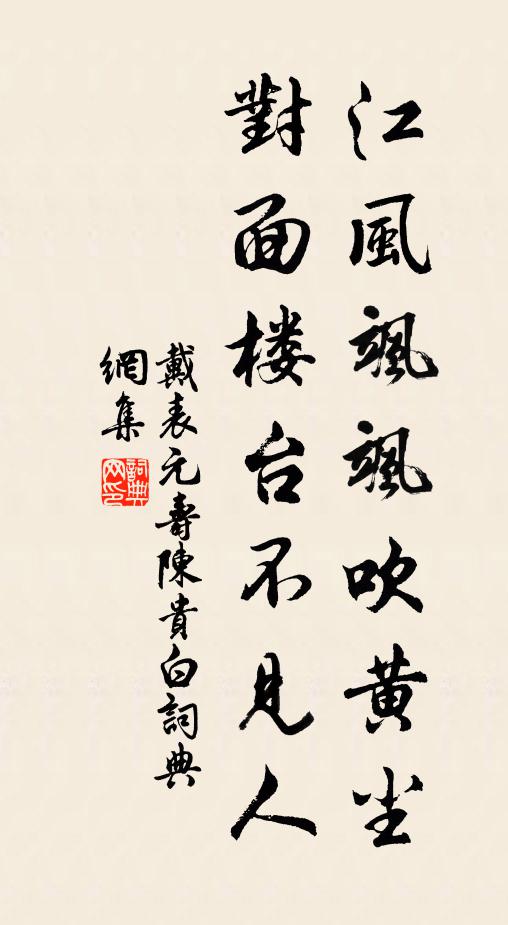 江風颯颯吹黄尘
對面楼台不见人
戴表元壽陳貴白詞典
網集
詞典网印